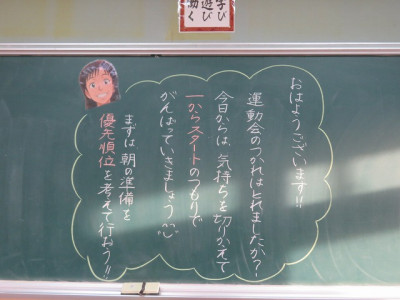 学び
遊び
働く
おはようございます!!
運動会のつかれはとれましたか?
今日からは、気持ちを切りかえて
一からスタートのつもりで
がんばっていきましょう
まずは朝の準備を
優先順位を考えて行おう!!